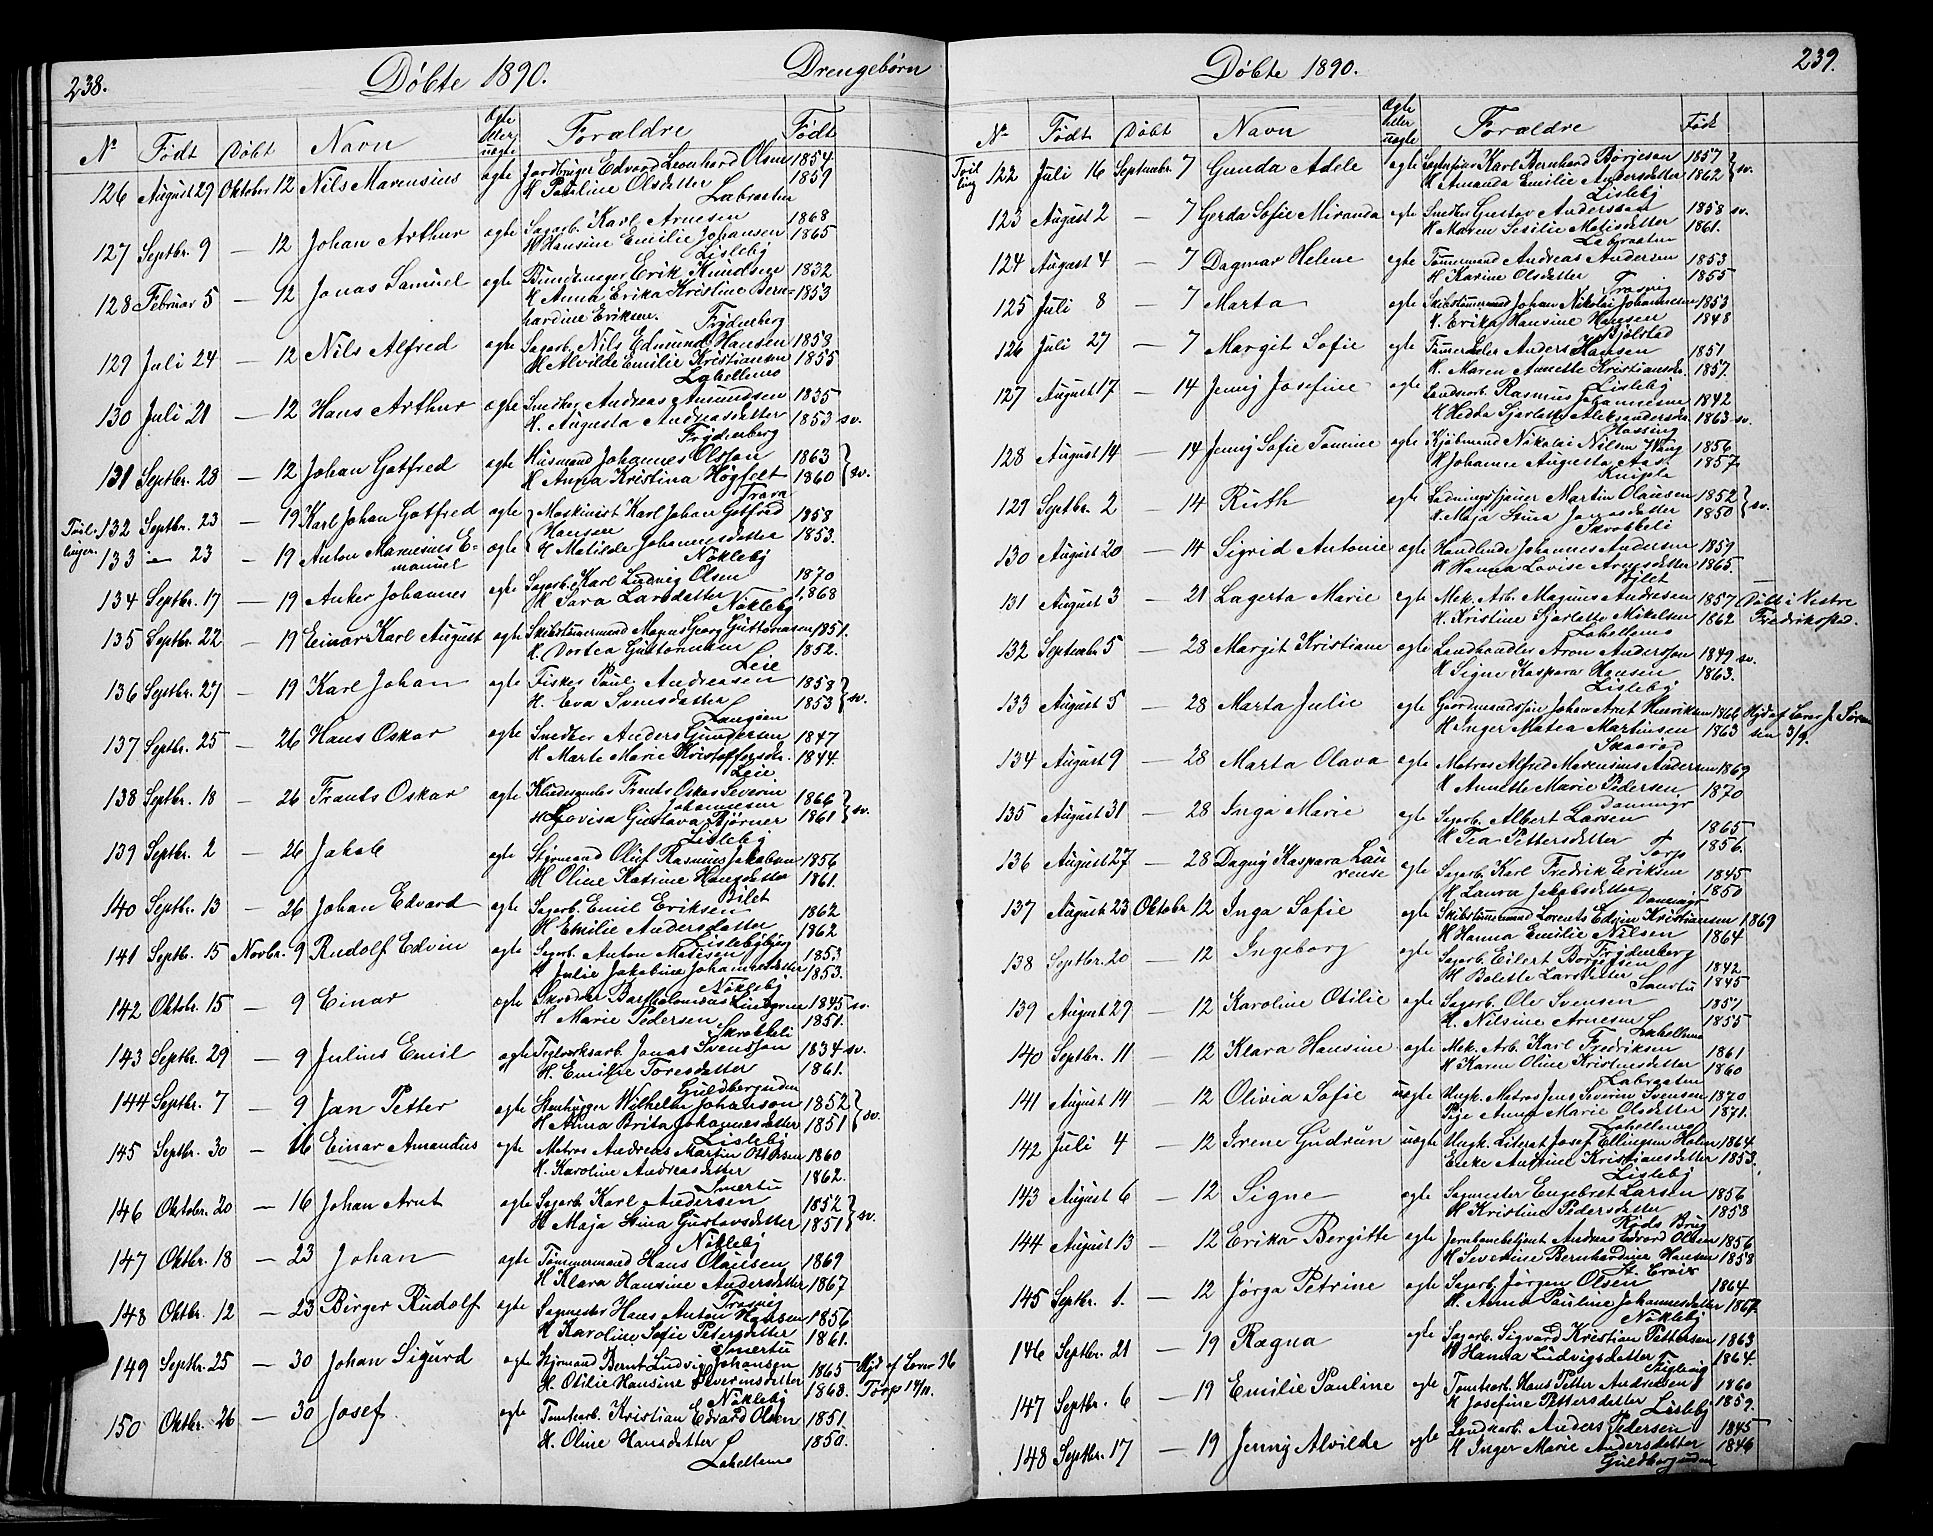 238.
Döbte 1890.
Drengebørn
No Födt Döbt Navn Ægte eller uægte Forældre Födt
126 August 29 Oktober 12 Nils Marensius ægte Jordbruger Edvard Leonhard Olsen 1854
H. Pauline Olsdatter 1859
Labraaten
127 Septbr. 9 — 12 Johan Arthur ægte Sagarb. Karl Arnesen 1868
H. Hansine Emilie Johansen 1865
Lisleby
128 Februar 5 — 12 Jonas Samuel ægte Bundtmager Erik Knudsen 1832
H. Anna Erika Kristine Bern= 1853
hardine Eriksen.
Frydenberg
129 Juli 24 — 12 Nils Alfred ægte Sagarb. Nils Edmund Hansen 1858
H. Alvilde Emilie Kristiansen 1855
Labellemo
130 Juli 21 — 12 Hans Arthur ægte Snedker Andreas Amundsen 1835
H. Augusta Andreasdatter 1853 sv.
Frydenberg
131 Septbr. 28 — 12 Johan Gotfred ægte Husmand Johannes Olsson 1863
H. Anna Kristina Högfelt 1860 } sv.
Trara
Tvil- 132 Septbr. 23 — 19 Karl Johan Gotfred ægte Maskinist Karl Johan Gotfred 1858
Hansen
linger. 133 — 23 — 19 Anton Marensius E= ægte H. Matilde Johannesdatter 1853.
manuel
Nökleby
134 Septbr. 17 — 19 Anker Johannes ægte Sagarb. Karl Ludvig Olsen 1870
H. Sara Larsdatter 1868
Nökleby
135 Septbr. 22 — 19 Einar Karl August ægte Skibstömmermand Magnus Georg Guttormsen 1851.
H. Dortea Guttormsen 1852.
Leie
136 Septbr. 27 — 19 Karl Johan ægte Fisker Paul Andreasen 1858
H. Eva Svensdatter 1853 } sv.
Langöen
137 Septbr. 25 — 26 Hans Oskar ægte Snedker Anders Gundersen 1847
H. Marte Marie Kristoffersdr. 1844.
Leie
138 Septbr. 18 — 26 Frants Oskar ægte Frants Oskar Severin
Johannesen 1866
H. Lovisa Gustava Björner 1861 } sv.
Lisleby
139 Septbr. 2 — 26 Jakob ægte Styrmand Oluf Rasmus Jakobsen 1856
H. Oline Katrine Hansdatter 1861.
Bilet
140 Septbr. 13 — 26 Johan Edvard ægte Sagarb. Emil Eriksen 1862
H. Emilie Andersdatter 1862
Lislebybyg
141 Septbr. 15 Novbr. 9 Rudolf Edvin ægte Sagarb. Anton Matisen 1853
H. Julie Jakobine Johannesdatter 1853.
Nökleby
142 Oktobr. 15 — 9 Einar ægte Skrædder Bartholomæus Lindgren 1845 sv.
H. Marie Pedersen 1851.
Skrakkeli
143 Septbr. 29 — 9 Julius Emil ægte Teglverksarb. Jonas Svensson 1834 sv.
H. Emilie Toresdatter 1861.
Guldbergsuden
144 Septbr. 7 — 9 Jan Petter ægte Stenhugger Wilhelm Johanson 1852
H. Anna Brita Johannesdatter 1851 } sv.
Lisleby
145 Septbr. 30 — 16 Einar Amandus ægte Matros Andreas Martin Ottesen 1860
H. Karoline Andreasdatter 1862.
Smertu
146 Oktobr. 20 — 16 Johan Arnt ægte Sagarb. Karl Andersen 1852
H. Maja Stina Gustavsdatter 1851 } sv.
Nökleby
147 Oktbr. 18 — 23 Johan ægte Tömmermand Hans Olausen 1869
H. Klara Hansine Andersdatter 1867
Trosvig
148 Oktbr. 12 — 23 Birger Rudolf ægte Sagmester Hans Anton Hansen 1856
H. Karoline Sofie Petersdatter 1861.
Smertu
149 Septbr. 25 — 30 Johan Sigurd ægte Styrmand Bernt Ludvig Johansen 1865 Hjd af Lærer
H. Otilie Hansine Severinsdatter 1863. Torp 14/11.
Nökleby
150 Oktbr. 26 — 30 Josef. ægte Tomtearb. Kristian Edvard Olsen 1851.
H. Oline Hansdatter 1850.
Labellemo
Döbte 1890.
239.
No Födt Döbt Navn Ægte eller uægte Forældre Födt
Tvil ling 122 Juli 16 Septembr. 7 Gunda Adele ægte Karl Bernhard Börjeson 1857
H. Amanda Emilie Andersdatter 1862 } sv.
Lisleby
123 August 2 — 7 Gerda Sofie Miranda ægte Snedker Gustav Andersson 1858 sv.
H. Maren Sesilie Matisdatter 1861.
Labraaten
124 August 4 — 7 Dagmar Helene ægte Tömmermand Andreas Andersen 1853
H. Karine Olsdatter 1855
Trosvig
125 Juli 8 — 7 Marta ægte Skibstömmermand Johan Nikolai Johannesen 1853
H. Erika Hansine Hansen 1848
Bjölstad
126 Juli 27 — 7 Margit Sofie ægte Anders Hansen 1851
H. Maren Annette Kristiansdr. 1857.
Lisleby
127 August 17 — 14 Jenny Josefine ægte Landarb. Rasmus Johannesen 1842
H. Hedda Sjarlotte Aleksandersdr. 1863 sv.
Hassing
128 August 14 — 14 Jenny Sofie Tomine ægte Kjöbmand Nikolai Nilsen Wang 1856
H. Johanne Augusta Aas. 1857
Kniple
129 Septbr. 2 — 14 Ruth ægte Ladningssjauer Martin Olausen 1852
H. Maja Stina Jonasdatter 1850 } sv.
Skrakkeli
130 August 20 — 14 Sigrid Antonie ægte Johannes Andersen 1859
H. Hanna Lovise Arnesdatter 1865.
Bilet
131 August 3 — 21 Lagerta Marie ægte Mek. Arb. Magnus Andresen 1857 Döbt i Vestre
H. Kristine Sjarlotte Mikelsen 1862 Fredrikstad.
Labellemo
132 Septembr. 5 — 28 Margit Kristiane ægte Landhandler Aron Andersson 1849 sv.
H. Signe Kaspara Hansen 1863.
Lisleby
133 August 5 — 28 Marta Julie ægte Gaardmandssön Johan Arnt Henriksen 1866 Hjd af Lærer J. Sören
H. Inger Matea Martinsen 1863 sen 3/9.
Skaaröd
134 August 9 — 28 Marta Olava ægte Matros Alfred Marensius Andersen 1869
H. Annette Marie Pedersen 1870
Dammyr
135 August 31 — 28 Inga Marie ægte Sagarb. Albert Larsen 1865
H. Tea Pettersdatter 1856.
Torp
136 August 27 — 28 Dagny Kaspara Lau ægte Sagarb. Karl Fredrik Eriksen 1845
rense
H. Laura Jakobsdatter 1850
Dammyr
137 August 23 Oktobr. 12 Inga Sofie ægte Skibstömmermand Lorents Edvin Kristiansen 1869
H. Hanna Emilie Nilsen 1864
Frydenberg
138 Septbr. 20 — 12 Ingeborg ægte Sagarb. Eilert Borgersen 1842.
H. Bolette Larsdatter 1845
139 August 29 — 12 Karoline Otilie ægte Sagarb. Ole Svensen 1851
H. Nilsine Arnesen 1855
Labellemo
140 Septbr. 11 — 12 Klara Hansine ægte Mek. Arb. Karl Fredriksen 1861
H. Karen Oline Kristinesdatter 1860
Labraaten
141 August 14 — 12 Olivia Sofie uægte Ungk. Matros Jens Severin Svensen 1870
Pige Anna Marie Olsdatter 1871.
Labellemo
142 Juli 4 — 12 Irene Gudrun uægte Ungk. Literat Josef Ellingsen Holm 1864
Enke Andrine Kristiansdatter 1853.
Lisleby
143 August 6 — 12 Signe ægte Sagmester Engebret Larsen 1856
H. Kristine Pedersdatter 1858
Röds Brug
144 August 13 — 12 Erika Bergitte ægte Jernbanebetjent Andreas Edvard Olsen 1856
H. Severine Bernhardine Hansen 1858
St. Croix
145 Septbr. 1. — 12 Jörga Petrine ægte Sagarb. Jörgen Olsen 1864
H. Anna Pauline Johannesdatter 1867.
Nökleby
146 Septbr. 21 — 19 Ragna ægte Sagarb. Sigvard Kristian Pettersen 1863
H. Hanna Ludvigsdatter 1864.
147 Septbr. 6 — 19 Emilie Pauline ægte Tomtearb. Hans Petter Andreasen 1860
H. Josefine Pettersdatter 1859.
Lisleby
148 Septbr. 17 — 19 Jenny Alvilde ægte Landarb. Anders Pedersen 1845
H. Inger Marie Andersdatter 1846
Guldbergsuden